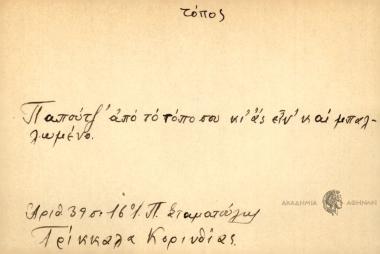 τόπος
Παπούτσ' ἀπό τό τόπο σου κι' ἄς εἶν' καί μπαλ-
λωμένο.
Ἀριθ. 39 σ. 16 Ἰ. Π. Σταματούλης
Τρίκκαλα Κορινθίας.
ΑΚΑΔΗΜΙΑ ΑΘΗΝΩΝ